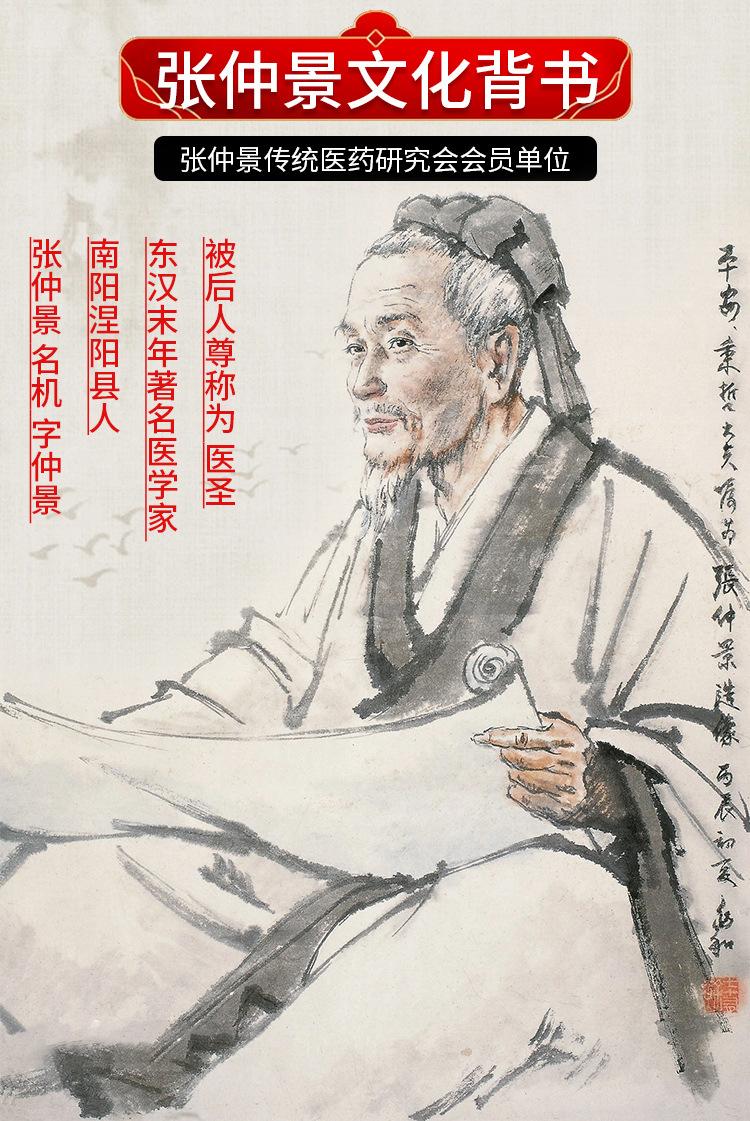 张仲景文化背书
张仲景传统医药研究会会员单位
张仲景 名机 字仲景
南阳涅阳县人
东汉末年著名医学家
被后人尊称为 医圣
平安、秉哲大夫嘱为張仲景造像 丙辰初夏 兆和